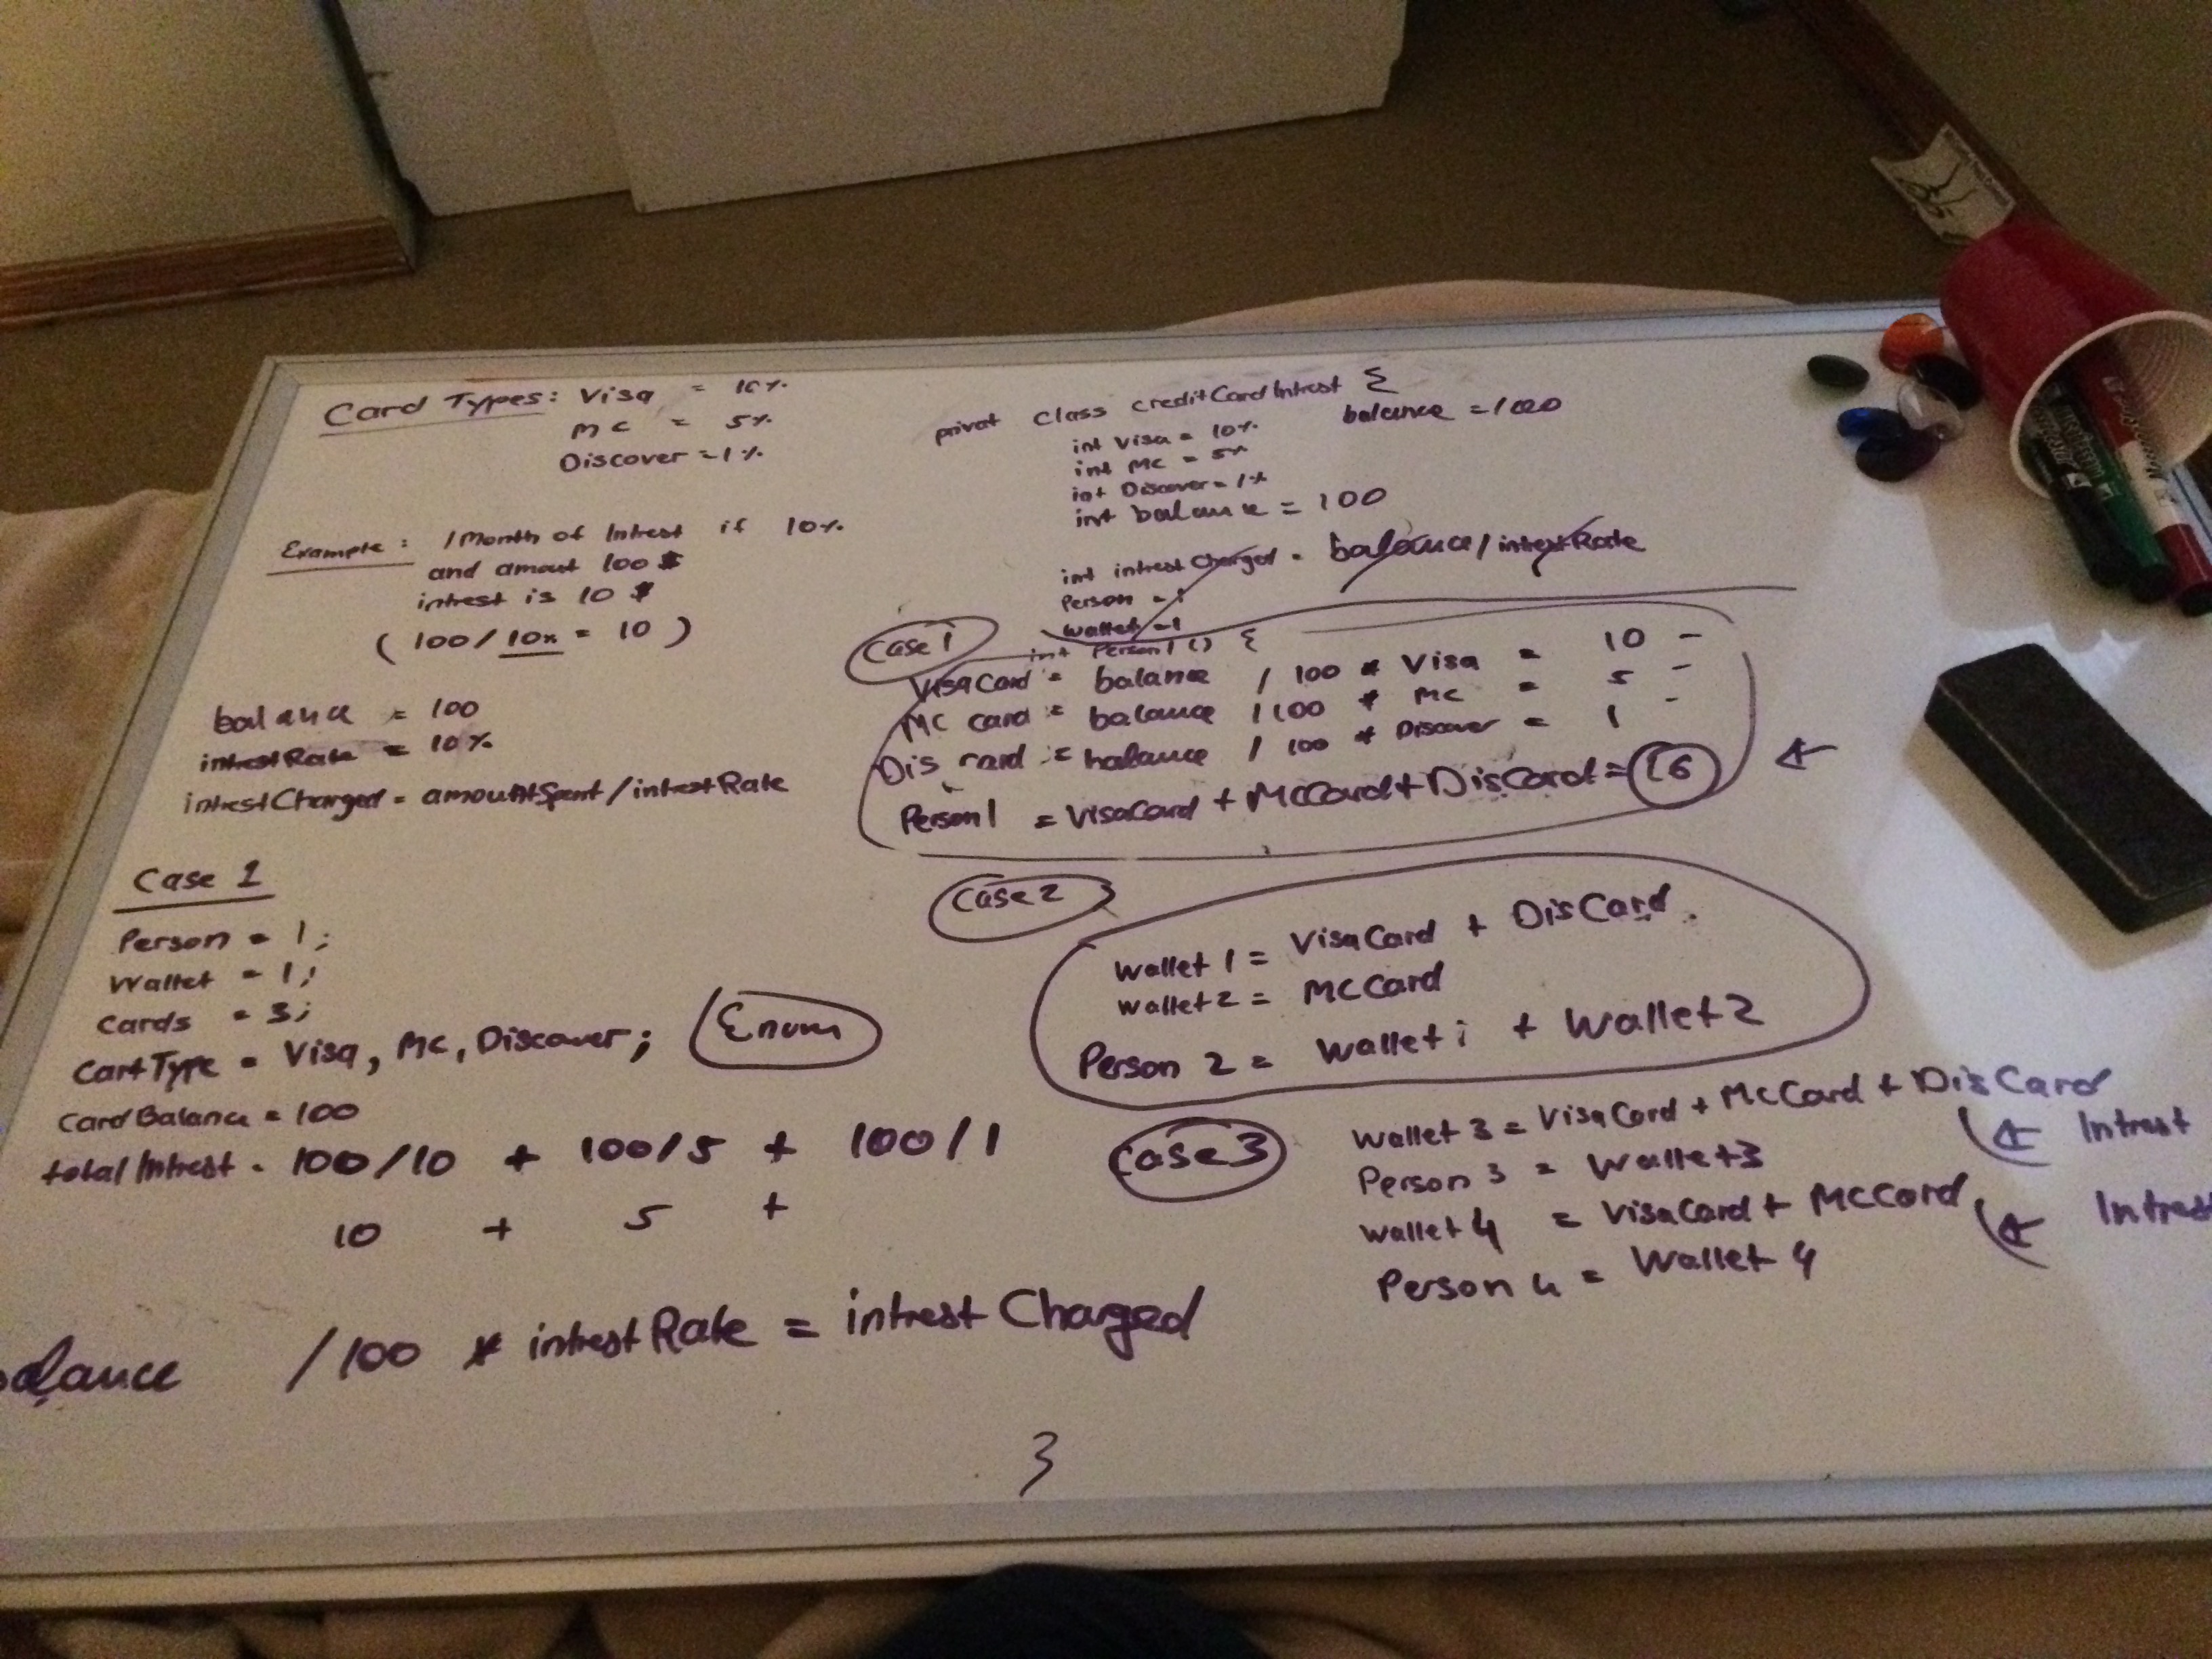 Card Types: Visa = 10%
MC = 5%
Discover = 1%
Example: 1 Month of Intrest if 10%
and amout 100 $
intrest is 10 $
(100/10% = 10)
balance = 100
intrestRate = 10%
intrestCharged = amountSpent/intrestRate
Case 1
Person = 1;
Wallet = 1;
Cards = 3;
CartType = Visa, MC, Discover; Enum
CardBalance = 100
total Intrest = 100/10 + 100/5 + 100/1
10 + 5 +
balance /100 * intrestRate = intrest Charged
privat class creditCardIntrest {
int Visa = 10% balance = 100
int MC = 5%
int Discover = 1%
int balance = 100
int intrest Charged = balance/intrestRate
Person = 1
Wallet = 1
Case 1
int Person1 () {
VisaCard = balance / 100 * Visa = 10 -
MC card = balance / 100 * MC = 5 -
Dis card = balance / 100 * Discover = 1 -
Person1 = VisaCard + McCard + DisCard = 16
Case 2
Wallet 1 = VisaCard + DisCard
Wallet 2 = MCCard
Person 2 = Wallet 1 + Wallet 2
Case 3
Wallet 3 = VisaCard + McCard + DisCard
Intrest
Person 3 = Wallet 3
Wallet 4 = VisaCard + McCard
Intrest
Person 4 = Wallet 4
}